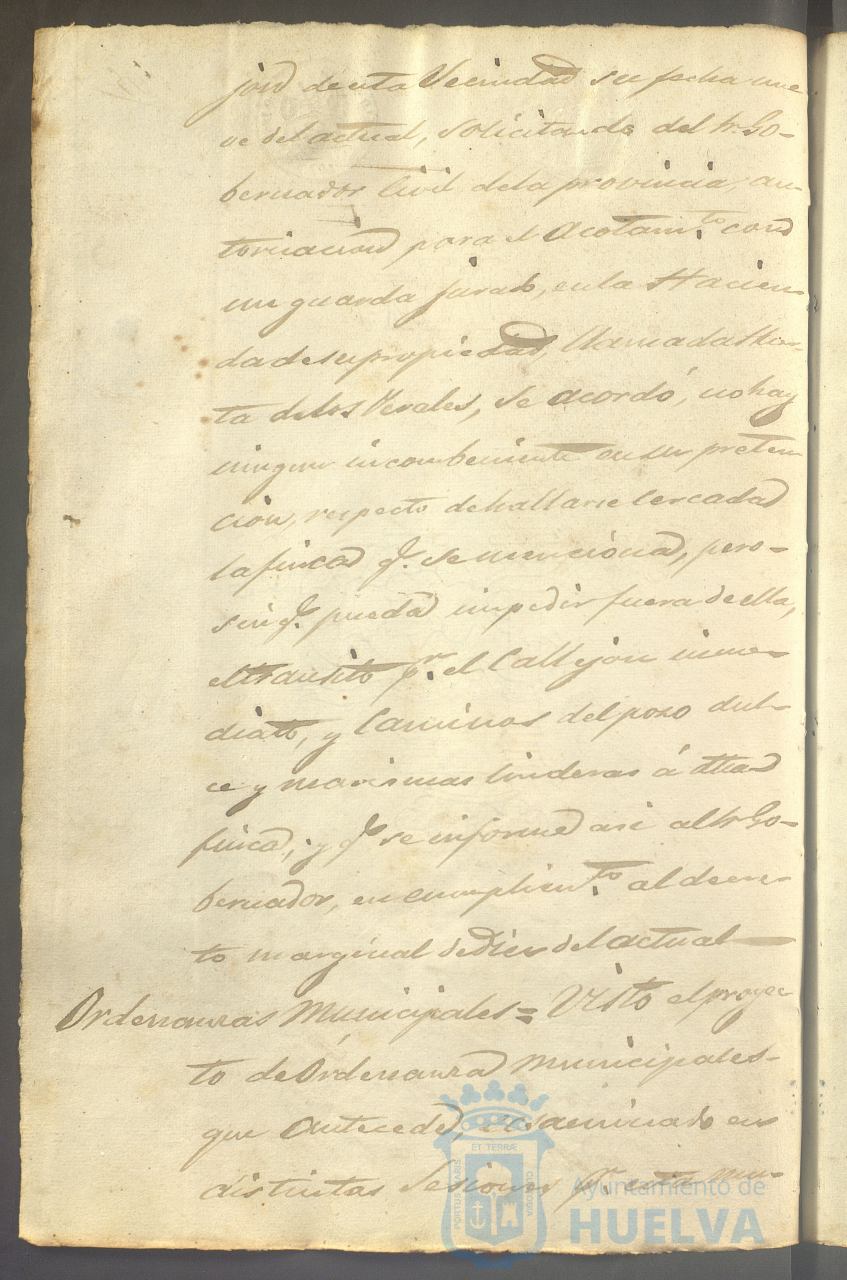 jon de esta Vecindad su fecha nue
ve del actual, solicitando del Sr. Go-
bernador Civil de la provincia, au-
torizacion para el Acotam.to con
un guarda jurado, en la Hacien-
da de su propiedad, llamada Huer-
ta de los Perales, se acordó, no hay
ningun incombeniente en su preten
cion, respecto de hallarse Cercada
la finca q.e se menciona, pero-
sin q.e pueda impedir fuera de ella,
el transito p.r el Callejon inme-
diato, y Caminos del pozo dul-
ce y marismas linderas á dha
finca, y q.e se informe asi al Sr. Go-
bernador, en cumplim.to al decre-
to marginal de Diez del actual
Ordenanzas Municipales = Visto el proyec
to de Ordenanzas municipales-
que Antecede, ecsaminado en
distintas Sesiones p.r esta mu-
ET TERRÆ
PORTUS MARIS
CUSTODIA
Ayuntamiento de
HUELVA